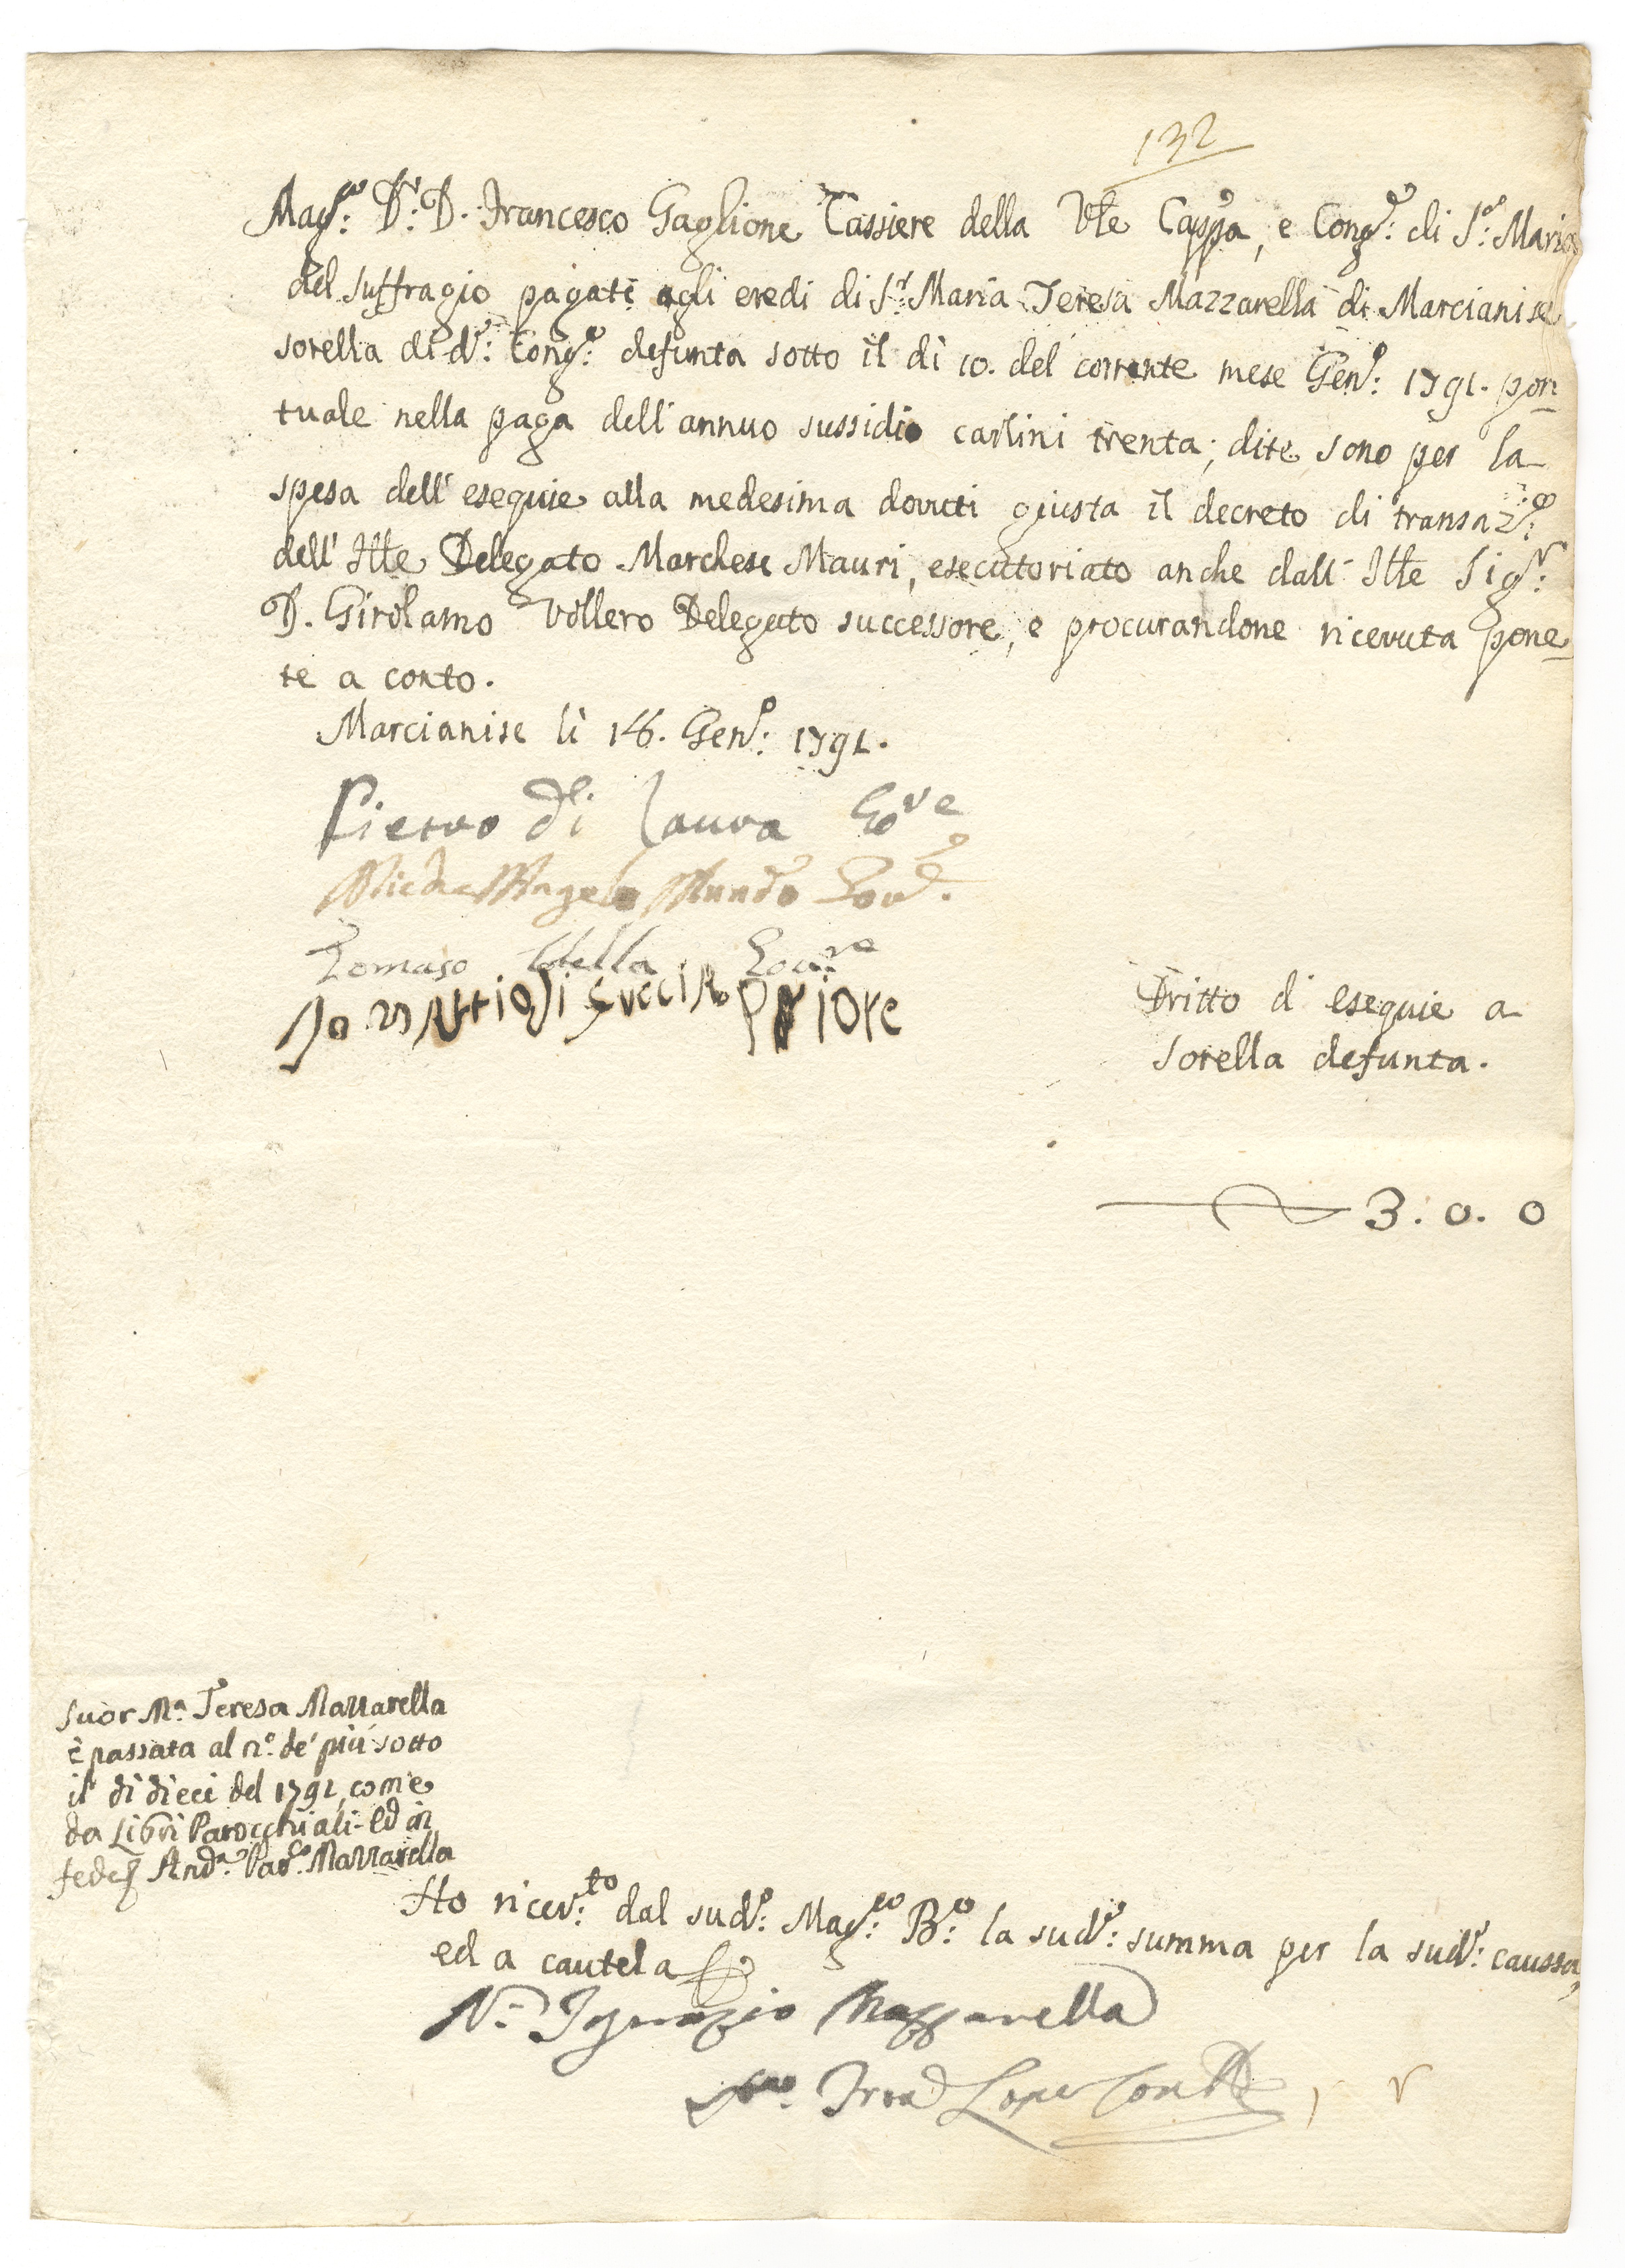 132
Mag.co D.r D. Francesco Gaglione Cassiere della Vle Cappa, e Cong.e di S.a Maria
del Suffragio pagate agli eredi di S.r Maria Teresa Mazzarella di Marcianise
sorella di d.a Cong.e defunta sotto il dì 10. del corrente mese Gen.o 1791. pon
tuale nella paga dell'annuo sussidio carlini trenta; dite sono per la
spesa dell'esequie alla medesima dovuti giusta il decreto di transaz.e
dell'Ille Delegato Marchese Mauri, esecutoriato anche dall'Ille Sig.r
D. Girolamo Vollero Delegato successore, e procurandone ricevuta pone
te a conto.
Marcianise lì 16. Gen.o 1791.
Pietro di Laura Gove
Michel'Angelo Mundo Gov.e
Tomaso Gov.re
Io Priore
Dritto d'esequie a
Sorella defunta.
3. 0. 0
Suor M.a Teresa Mazzarella
è passata al n.o de' più sotto
il dì dieci del 1791, come
da Libri Parocchiali. Ed in
fede And.a Par.co Mazzarella
Ho ricev.to dal sud.o Mag.co B.o la sud.a summa per la sud.a caussa,
ed a cautela
N.r Ignazio Mazzarella